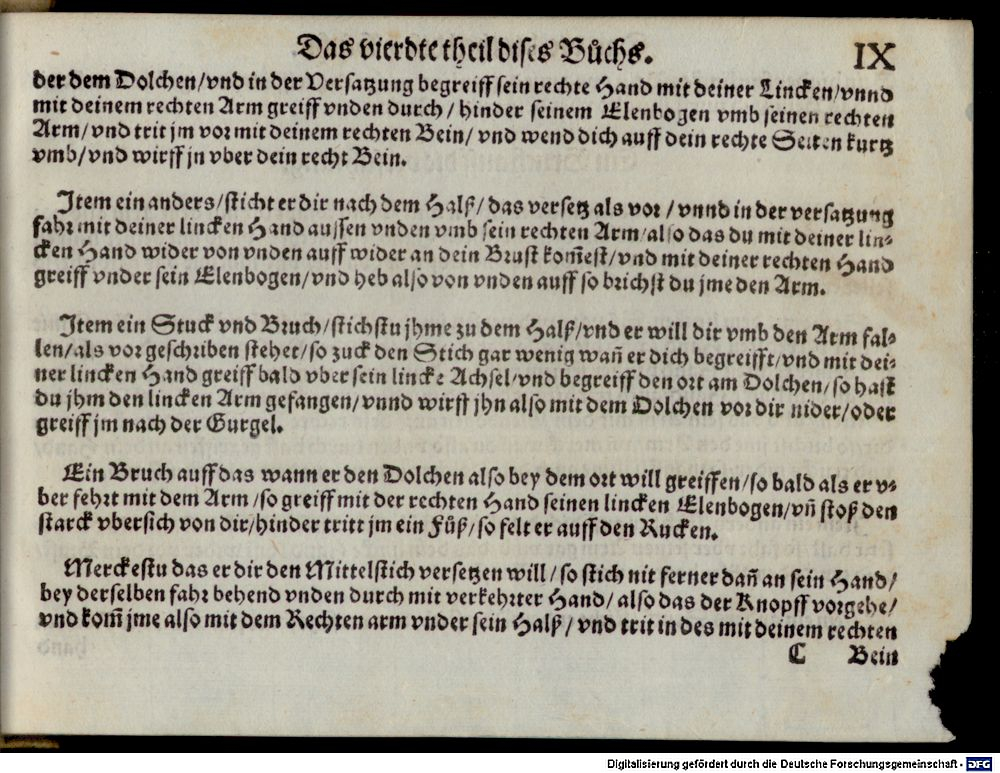 Das vierdte theil dises Bůchs. IX
der dem Dolchen/vnd in der Versatzung begreiff sein rechte Hand mit deiner Lincken/vnnd
mit deinem rechten Arm greiff vnden durch/ hinder seinem Elenbogen vmb seinen rechten
Arm/vnd trit jm vor mit deinem rechten Bein/ vnd wend dich auff dein rechte Seiten kurtz
vmb/vnd wirff jn vber dein recht Bein.
Item ein anders/sticht er dir nach dem Halß/ das versetz als vor / vnnd in der versatzung
fahr mit deiner lincken Hand aussen vnden vmb sein rechten Arm/also das du mit deiner lin⸗
cken Hand wider von vnden auff wider an dein Brust kom̃est/vnd mit deiner rechten Hand
greiff vnder sein Elenbogen/vnd heb also von vnden auff so brichst du jme den Arm.
Item ein Stuck vnd Bruch/stichstu jhme zu dem Halß/vnd er will dir vmb den Arm fal⸗
len/als vor geschriben stehet/so zuck den Stich gar wenig wañ er dich begreifft/vnd mit dei⸗
ner lincken Hand greiff bald vber sein lincke Achsel/vnd begreiff den ort am Dolchen/so hast
du jhm den lincken Arm gefangen/vnnd wirff jhn also mit dem Dolchen vor dir nider/oder
greiff jm nach der Gurgel.
Ein Bruch auff das wann er den Dolchen also bey dem ort will greiffen/so bald als er v⸗
ber fehrt mit dem Arm/so greiff mit der rechten Hand seinen lincken Elenbogen/vñ stoß den
starck vbersich von dir/hinder tritt jm ein Fůß/so felt er auff den Rucken.
Merckestu das er dir den Mittelstich versetzen will/so stich nit ferner dañ an sein Hand/
bey derselben fahr behend vnden durch mit verkehrter Hand/ also das der Knopff vorgehe/
vnd kom̃ jme also mit dem Rechten arm vnder sein Halß/ vnd trit in des mit deinem rechten
C Bein
Digitalisierung gefördert durch die Deutsche Forschungsgemeinschaft - DFG